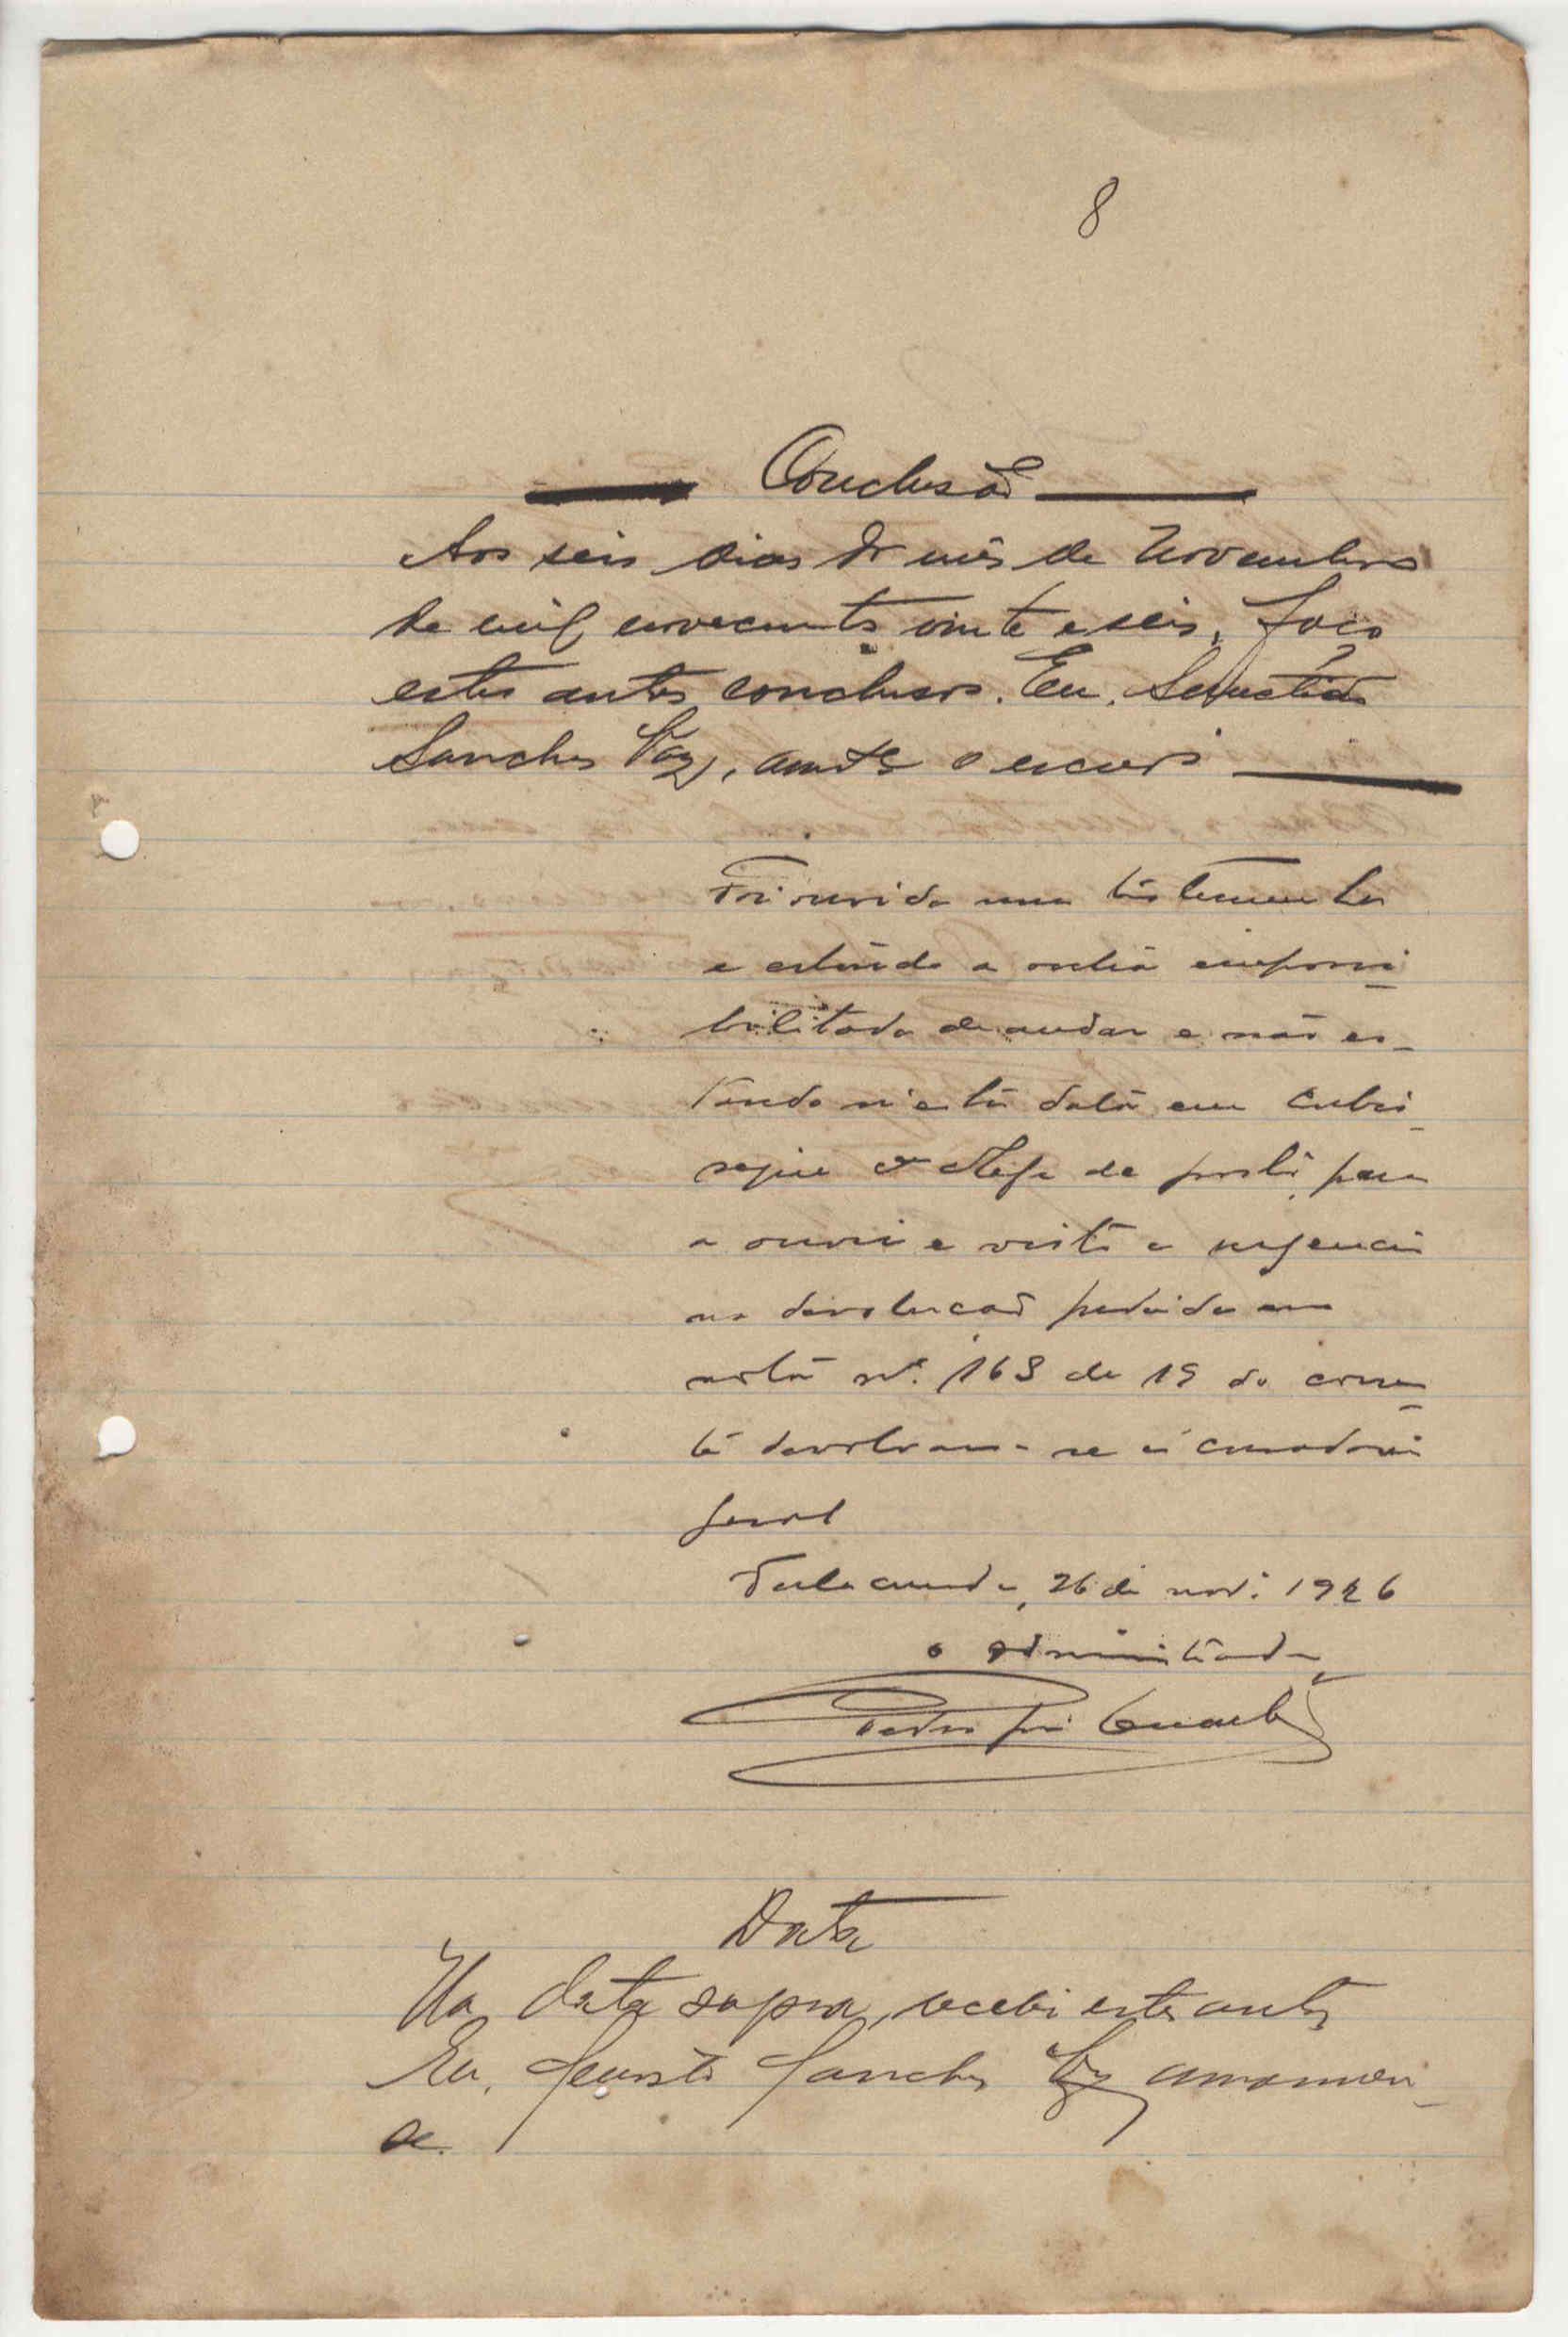 8
Conclusão
Aos seis dias do mês de Novembro
de mil novecentos vinte e seis, faço
estes autos conclusos. Eu,
Sanches Vaz, amte o escrevi
Foi ouvida uma testemunha
e estando a outra impossi
bilitada de andar e não es-
tando n'esta data em
o Chefe de posto para
a ouvir e visto a urgencia
na devolução pedida em
nota nº. 163 de 19 do corren
te devolvam-se á curadoria
geral
26 de nov. 1926
o administrador
Pedro José
Data
Na data supra, recebi estes autos
Eu, Sanches Vaz amanuen-
se.